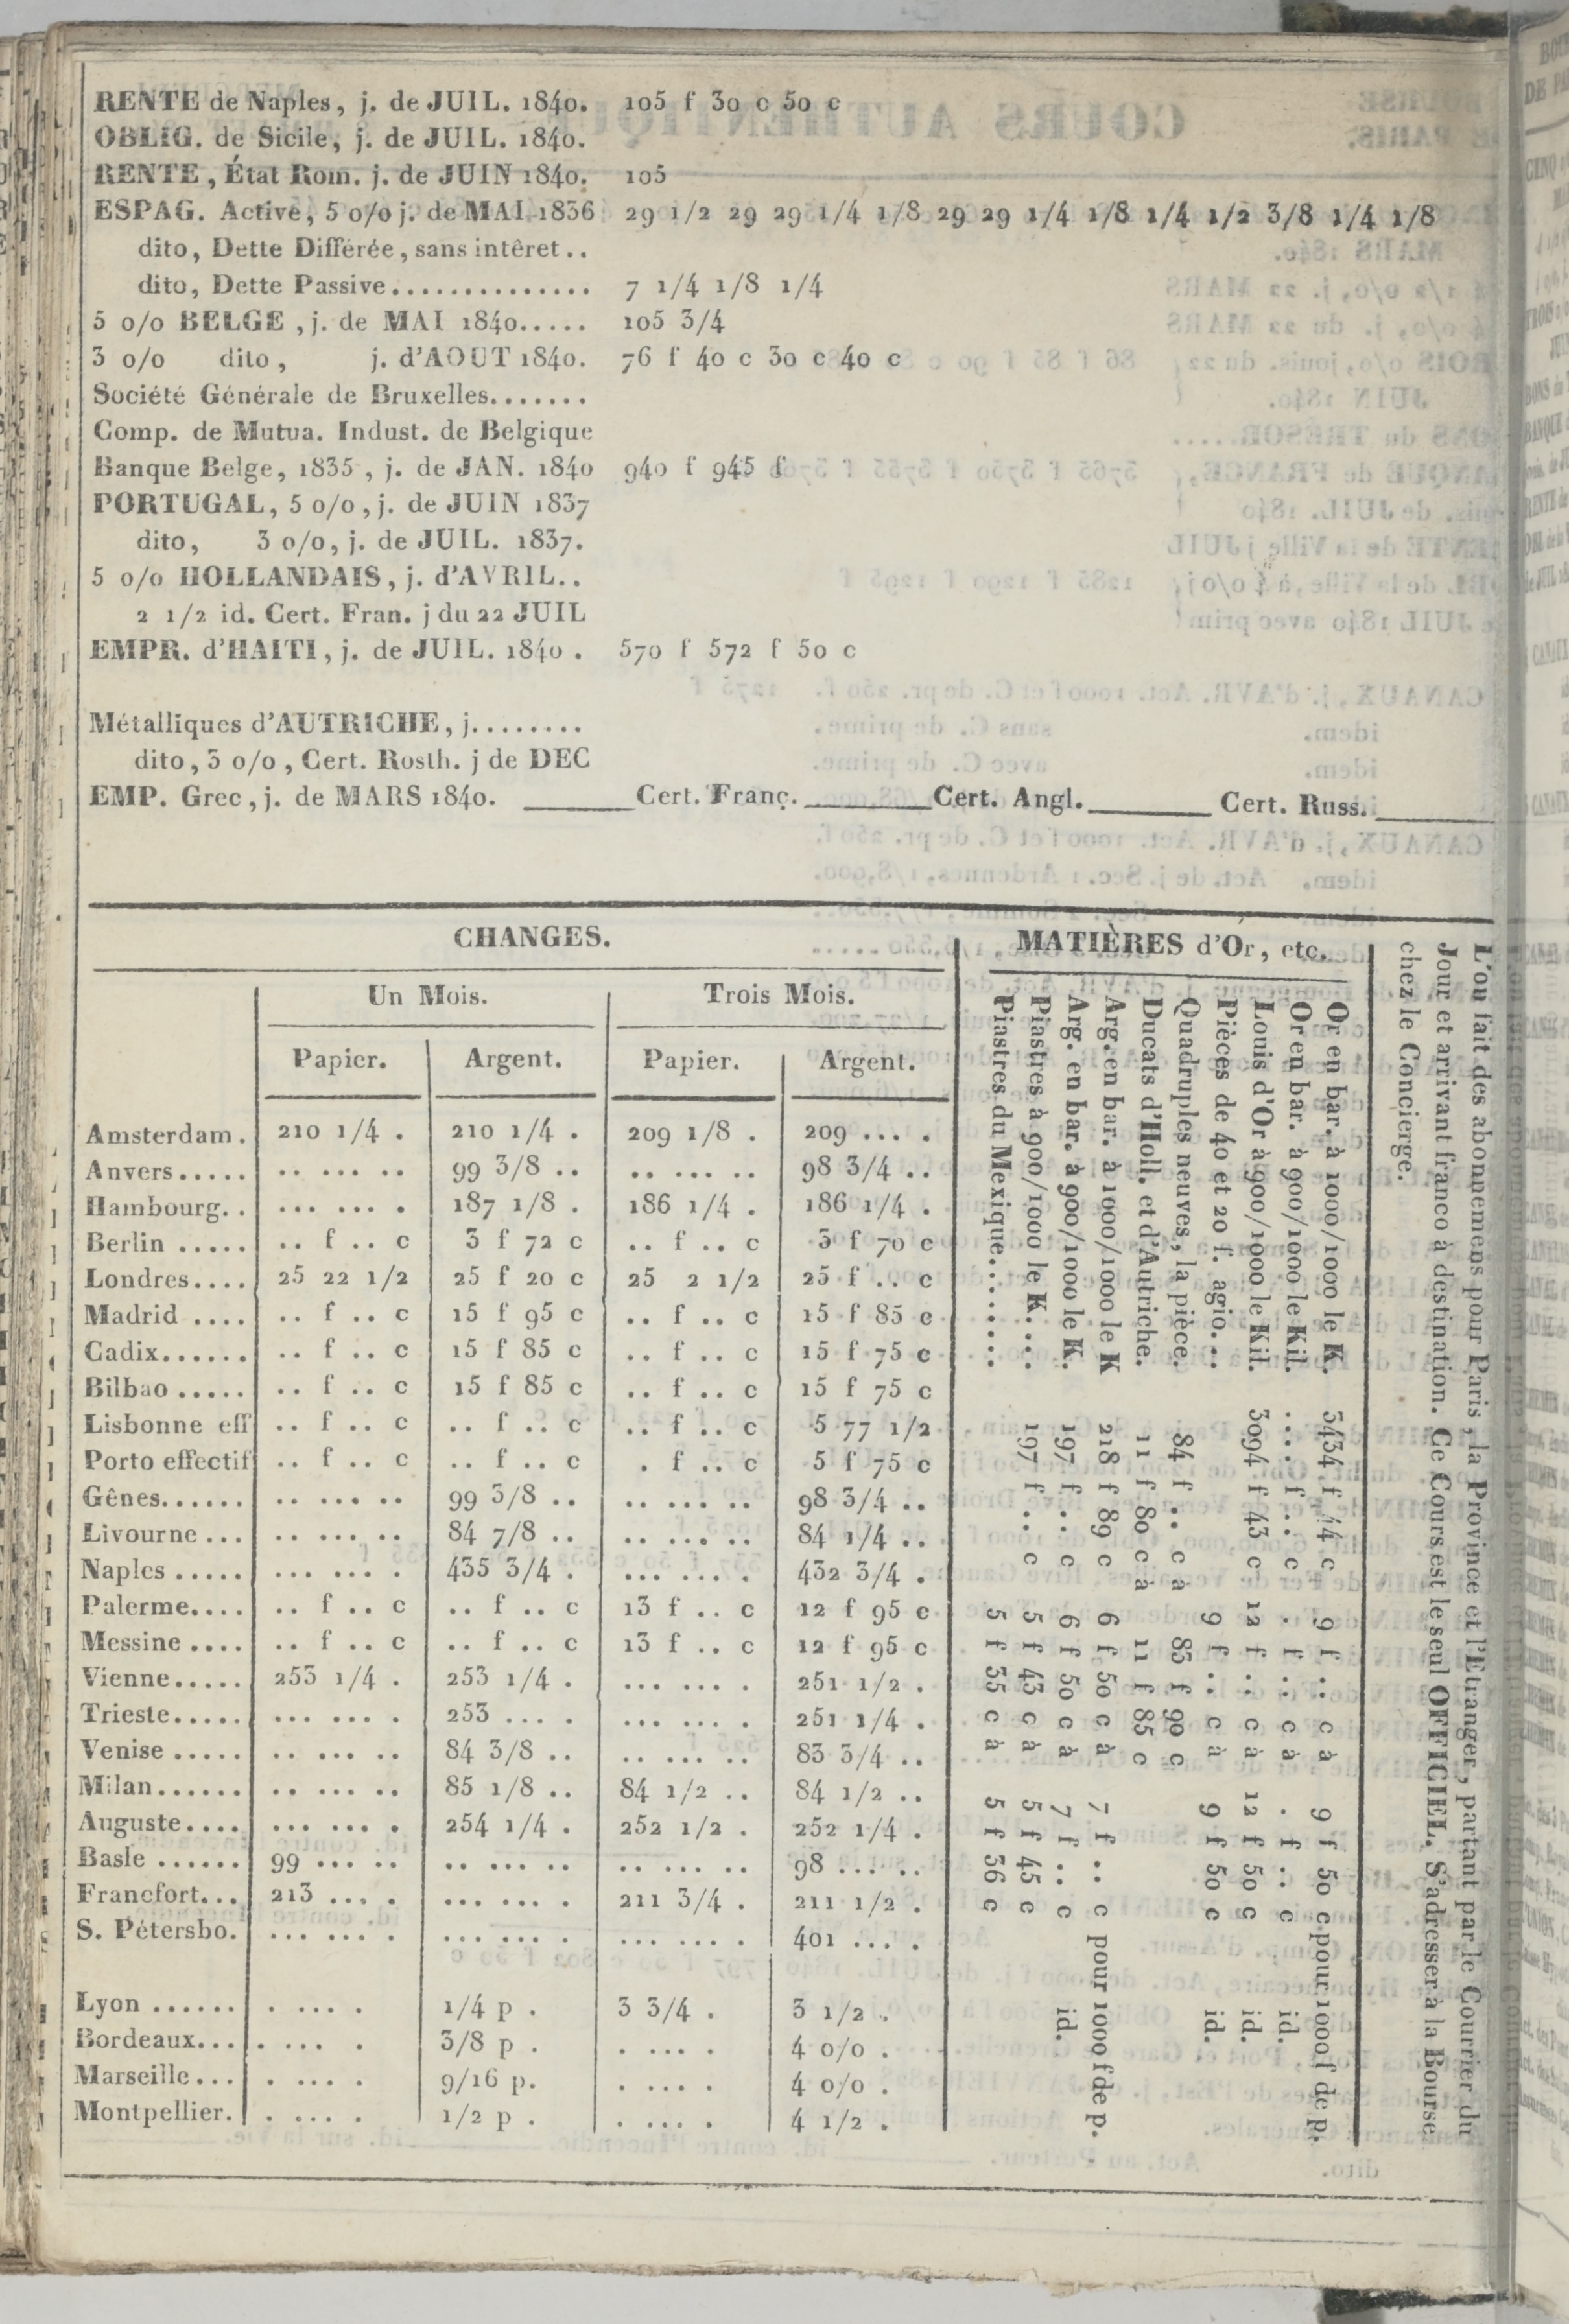 RENTE de Naples, j. de JUIL. 1840. 105 f 30 c 50 c
OBLIG. de Sicile, j. de JUIL. 1840.
RENTE, État Rom. j. de JUIN 1840. 105
ESPAG. Active, 5 o/o j. de MAI 1836 29 1/2 29 29 1/4 1/8 29 29 1/4 1/8 1/4 1/2 3/8 1/4 1/8
dito, Dette Différée, sans intêret..
dito, Dette Passive.............. 7 1/4 1/8 1/4
5 o/o BELGE, j. de MAI 1840..... 105 3/4
3 o/o dito, j. d'AOUT 1840. 76 f 40 c 30 c 40 c
Société Générale de Bruxelles.......
Comp. de Mutua. Indust. de Belgique
Banque Belge, 1835, j. de JAN. 1840 940 f 945 f
PORTUGAL, 5 o/o, j. de JUIN 1837
dito, 3 o/o, j. de JUIL. 1837.
5 o/o HOLLANDAIS, j. d'AVRIL..
2 1/2 id. Cert. Fran. j du 22 JUIL
EMPR. d'HAITI, j. de JUIL. 1840. 570 f 572 f 50 c
Métalliques d'AUTRICHE, j........
dito, 3 o/o, Cert. Rosth. j de DEC
EMP. Grec, j. de MARS 1840. ______ Cert. Franç. ______ Cert. Angl. ______ Cert. Russ. ______
CHANGES.
Un Mois. Trois Mois.
Papier. Argent. Papier. Argent.
Amsterdam. 210 1/4 . 210 1/4 . 209 1/8 . 209 ... .
Anvers..... .. ... .. 99 3/8 .. .. ... .. 98 3/4 ..
Hambourg.. ... ... . 187 1/8 . 186 1/4 . 186 1/4 .
Berlin ..... .. f .. c 3 f 72 c .. f .. c 3 f 70 c
Londres.... 25 22 1/2 25 f 20 c 25 2 1/2 25 f .. c
Madrid .... .. f .. c 15 f 95 c .. f .. c 15 f 85 c
Cadix...... .. f .. c 15 f 85 c .. f .. c 15 f 75 c
Bilbao ..... .. f .. c 15 f 85 c .. f .. c 15 f 75 c
Lisbonne eff .. f .. c .. f .. c .. f .. c 5 77 1/2
Porto effectif .. f .. c .. f .. c . f .. c 5 f 75 c
Gênes...... .. ... .. 99 3/8 .. .. ... .. 98 3/4 ..
Livourne ... .. ... .. 84 7/8 .. .. ... .. 84 1/4 ..
Naples ..... ... ... . 435 3/4 . ... ... . 432 3/4 .
Palerme.... .. f .. c .. f .. c 13 f .. c 12 f 95 c
Messine .... .. f .. c .. f .. c 13 f .. c 12 f 95 c
Vienne..... 253 1/4 . 253 1/4 . ... ... . 251 1/2 .
Trieste..... ... ... . 253 ... . ... ... . 251 1/4 .
Venise ..... .. ... .. 84 3/8 .. .. ... .. 83 3/4 ..
Milan...... .. ... .. 85 1/8 .. 84 1/2 .. 84 1/2 ..
Auguste.... ... ... . 254 1/4 . 252 1/2 . 252 1/4 .
Basle ...... 99 ... .. .. ... .. .. ... .. 98 ... ..
Francfort... 213 ... . ... ... . 211 3/4 . 211 1/2 .
S. Pétersbo. ... ... . ... ... . ... ... . 401 ... .
Lyon ...... . ... . 1/4 p . 3 3/4 . 3 1/2 .
Bordeaux... . ... . 3/8 p . . ... . 4 o/o .
Marseille... . ... . 9/16 p. . ... . 4 o/o .
Montpellier. . ... . 1/2 p . . ... . 4 1/2 .
MATIÈRES d'Or, etc.
Or en bar. à 1000/1000 le K. 3434 f 44 c 9 f .. c à 9 f 50 c pour 1000 f de p.
Or en bar. à 900/1000 le Kil. .... f .. c . f .. c à . f .. c id.
Louis d'Or à 900/1000 le Kil. 3094 f 43 c 12 f .. c à 12 f 50 c id.
Pièces de 40 et 20 f. agio... 9 f .. c à 9 f 50 c id.
Quadruples neuves, la pièce. 84 f .. c à 83 f 90 c
Ducats d'Holl. et d'Autriche. 11 f 80 c à 11 f 85 c
Arg. en bar. à 1000/1000 le K 218 f 89 c 6 f 50 c à 7 f .. c pour 1000 f de p.
Arg. en bar. à 900/1000 le K. 197 f .. c 6 f 50 c à 7 f .. c id.
Piastres à 900/1000 le K.... 197 f .. c 5 f 43 c à 5 f 45 c
Piastres du Mexique......... 5 f 35 c à 5 f 36 c
L'on fait des abonnemens pour Paris, la Province et l'Etranger, partant par le Courrier du
Jour et arrivant franco à destination. Ce Cours est le seul OFFICIEL. S'adresser à la Bourse
chez le Concierge.